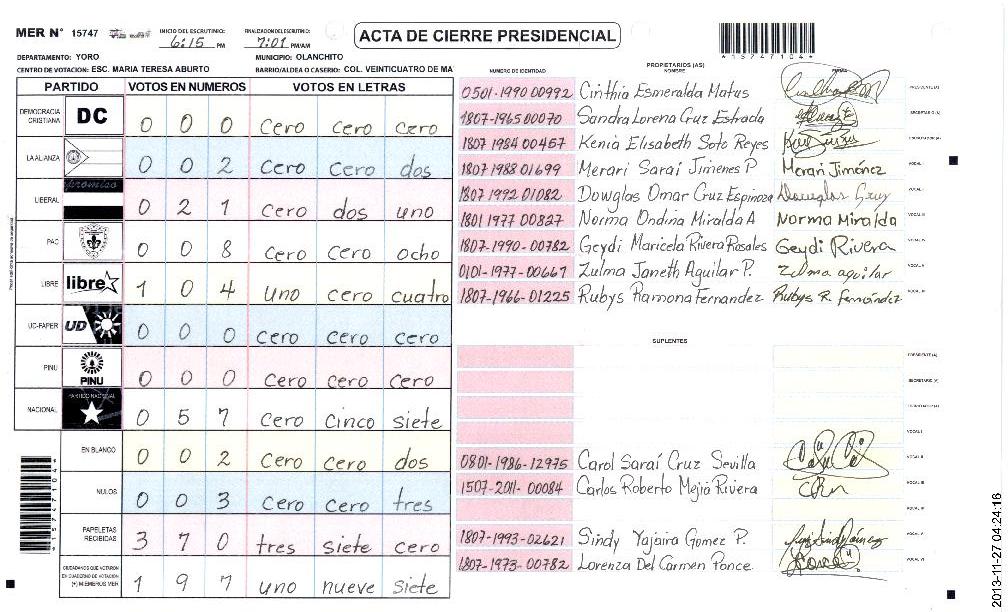 MER N° 15747 INICIO DEL ESCRUTINIO: 6:15 PM FINALIZACION DEL ESCRUTINIO: 7:01 PM/AM
ACTA DE CIERRE PRESIDENCIAL
*15747104*
DEPARTAMENTO: YORO MUNICIPIO: OLANCHITO
CENTRO DE VOTACION: ESC. MARIA TERESA ABURTO BARRIO/ALDEA O CASERIO: COL. VEINTICUATRO DE MA
PARTIDO VOTOS EN NUMEROS VOTOS EN LETRAS
DEMOCRACIA CRISTIANA DC 0 0 0 cero cero cero
LA ALIANZA 0 0 2 cero cero dos
LIBERAL 0 2 1 cero dos uno
PAC 0 0 8 cero cero ocho
LIBRE libre 1 0 4 uno cero cuatro
UD-FAPER UD 0 0 0 cero cero cero
PINU PINU 0 0 0 cero cero cero
NACIONAL PARTIDO NACIONAL 0 5 7 cero cinco siete
EN BLANCO 0 0 2 cero cero dos
NULOS 0 0 3 cero cero tres
PAPELETAS RECIBIDAS 3 7 0 tres siete cero
CIUDADANOS QUE VOTARON EN CUADERNO DE VOTACION (+) MIEMBROS MER 1 9 7 uno nueve siete
NUMERO DE IDENTIDAD PROPIETARIOS (AS) NOMBRE FIRMA
0501-1990 00992 Cinthia Esmeralda Matus PRESIDENTE (A)
1807-1965 00070 Sandra Lorena Cruz Estrada SECRETARIO (A)
1807 1984 00457 Kenia Elisabeth Soto Reyes ESCRUTADOR (A)
1807 1988 01699 Merari Sarai Jimenes P Merari Jiménez VOCAL I
1807 1992 01082 Dowglas Omar Cruz Espinoza Douglas Cruz VOCAL II
1801 1977 00827 Norma Ondina Miralda A Norma Miralda VOCAL III
1807-1990-00782 Geydi Maricela Rivera Rosales Geydi Rivera VOCAL IV
0101-1977-00667 Zulma Janeth Aguilar P. Zulma aguilar VOCAL V
1807-1966-01225 Rubys Ramona Fernandez Rubys R. Fernández VOCAL VI
SUPLENTES
PRESIDENTE (A)
SECRETARIO (A)
ESCRUTADOR (A)
VOCAL I
0801-1986-12975 Carol Saraí Cruz Sevilla VOCAL II
1507-2011-00084 Carlos Roberto Mejia Rivera CRM VOCAL III
VOCAL IV
1807-1993-02621 Sindy Yajaira Gomez P. VOCAL V
1807-1973-00782 Lorenza Del Carmen Ponce. Ponce VOCAL VI
2013-11-27 04:24:16